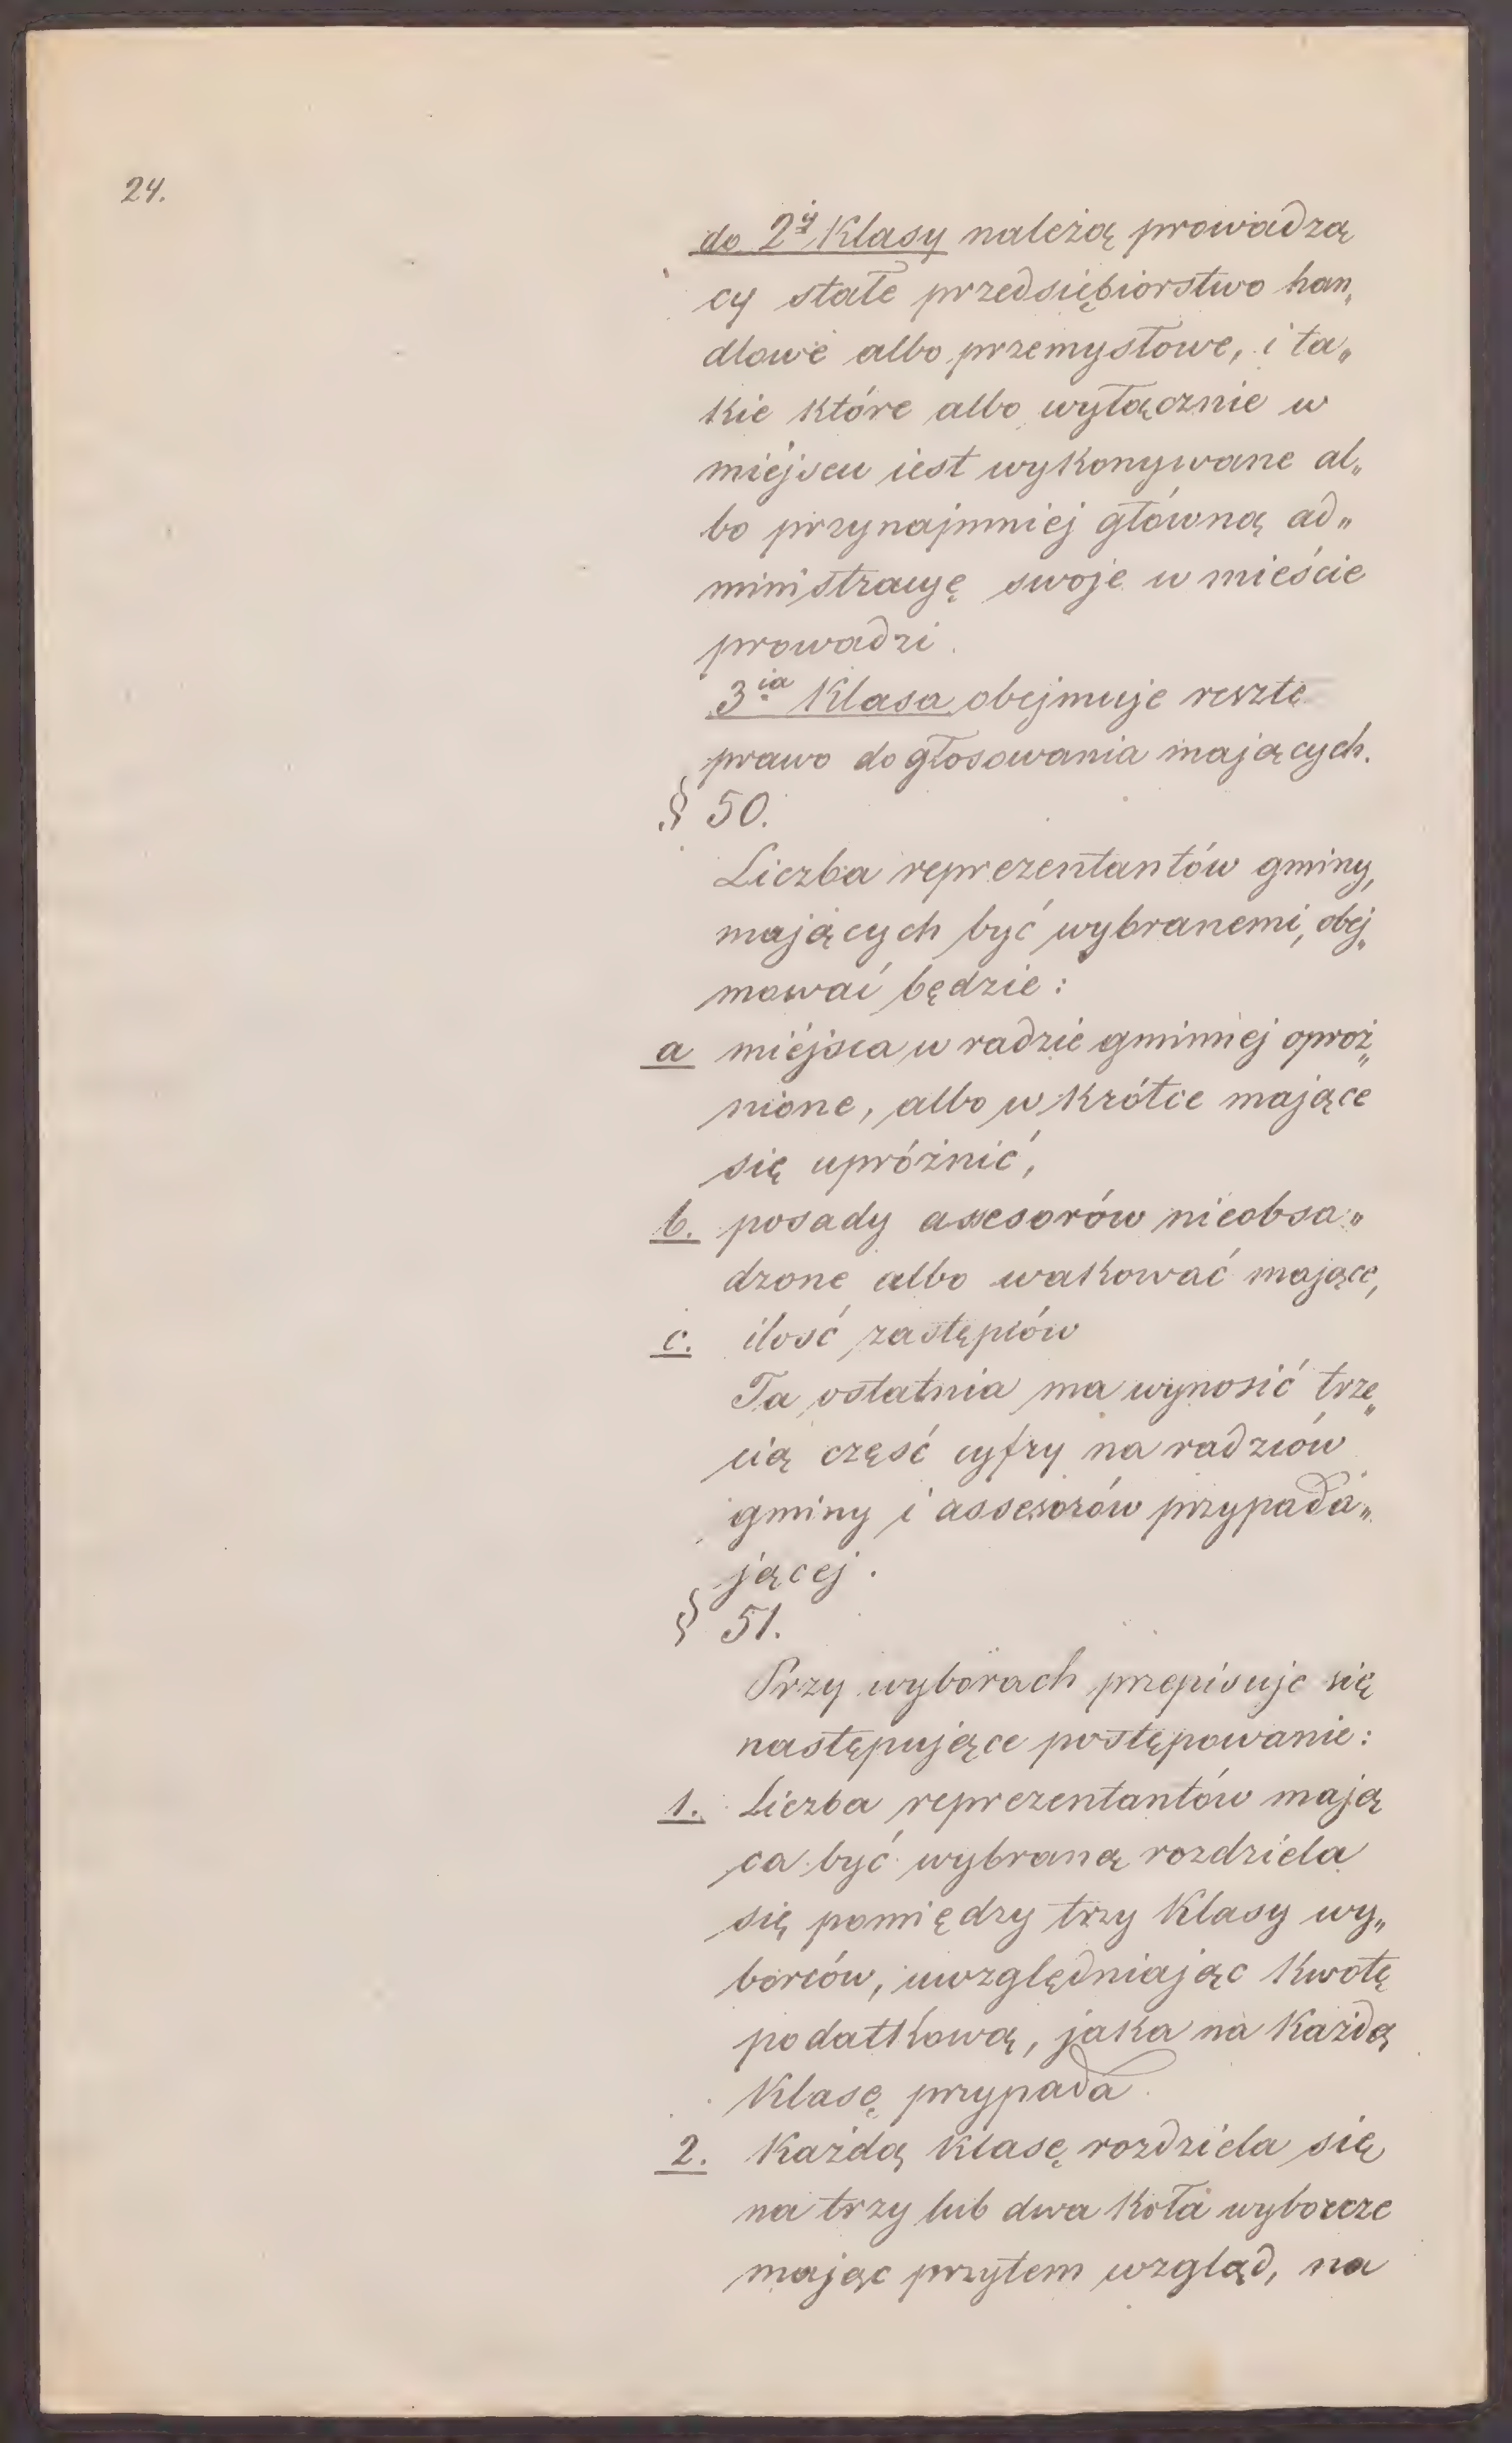 24.
do 2ij Klasy należą prowadzą
cy stałe przedsiębiorstwo han„
dlowe albo przemysłowe, i ta„
kie które albo wyłącznie w
miejscu iest wykonywane al„
bo przynajmniej główną ad„
ministracyę swoje w mieście
prowadzi.
3ia Klasa obejmuje resztę
prawo do głosowania mających.
§ 50.
Liczba reprezentantów gminy,
mających być wybranemi, obej„
mować będzie:
a miejsca w radzie gminnej opróż„
nione, albo w krótce mające
się upróżnić,
b. posady assesorów nieobsa„
dzone albo wakować mające,
c. ilość zastępców
Ta ostatnia ma wynosić trze„
cią część cyfry na radzców
gminy i assesorów przypada„
jącej.
§ 51.
Przy wyborach przepisuje się
następujące postępowanie:
1. Liczba reprezentantów mają
ca być wybraną rozdziela
się pomiędzy trzy Klasy wy„
borców, uwzględniając Kwotę
podatkową, jaka na Każdą
Klasę przypada.
2. Każdą Klasę rozdziela się
na trzy lub dwa Koła wyborcze
mając przytem wzgląd, na